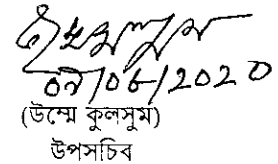 ০৭/০৬/2020
(উম্মে কুলসুম)
উপসচিব